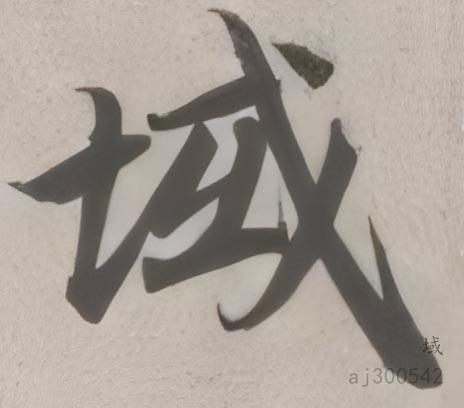 域
域
aj300542